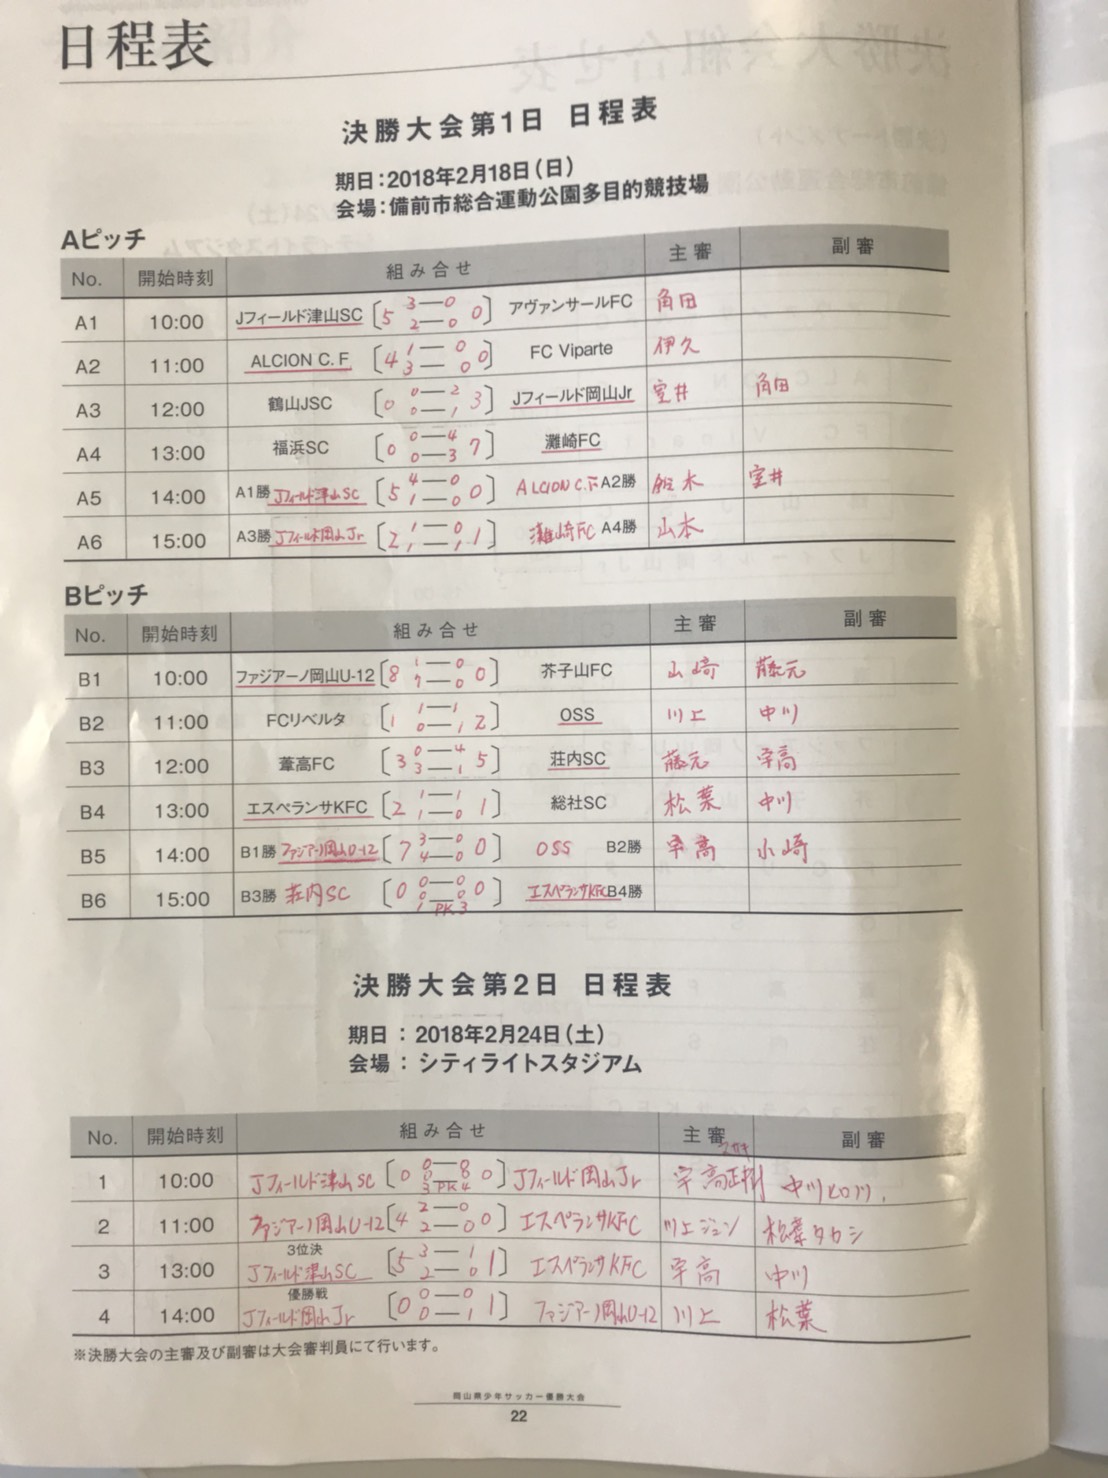 日程表
決勝大会第1日 日程表
期日：2018年2月18日（日）
会場：備前市総合運動公園多目的競技場
Aピッチ
No. 開始時刻 組み合せ 主審 副審
A1 10:00 Jフィールド津山SC [5 3―0 2―0 0] アヴァンサールFC 角田
A2 11:00 ALCION C.F [4 1―0 3―0 0] FC Viparte 伊久
A3 12:00 鶴山JSC [0 0―2 0―1 3] Jフィールド岡山Jr 室井 角田
A4 13:00 福浜SC [0 0―4 0―3 7] 灘崎FC
A5 14:00 A1勝 Jフィールド津山SC [5 4―0 1―0 0] ALCION C.F A2勝 鈴木 室井
A6 15:00 A3勝 Jフィールド岡山Jr [2 1―0 1―1 1] 灘崎FC A4勝 山本
Bピッチ
No. 開始時刻 組み合せ 主審 副審
B1 10:00 ファジアーノ岡山U-12 [8 1―0 7―0 0] 芥子山FC 山崎 藤元
B2 11:00 FCリベルタ [1 1―1 0―1 2] OSS 川上 中川
B3 12:00 葦高FC [3 0―4 3―1 5] 荘内SC 藤元 宇高
B4 13:00 エスペランサKFC [2 1―1 1―0 1] 総社SC 松葉 中川
B5 14:00 B1勝 ファジアーノ岡山U-12 [7 3―0 4―0 0] OSS B2勝 宇高 小崎
B6 15:00 B3勝 荘内SC [0 0―0 0―0 1 PK 3 0] エスペランサKFC B4勝
決勝大会第2日 日程表
期日：2018年2月24日（土）
会場：シティライトスタジアム
No. 開始時刻 組み合せ 主審 副審
1 10:00 Jフィールド津山SC [0 0―0 0―0 3 PK 4 0] Jフィールド岡山Jr 宇高正樹 中川ヒロツ
2 11:00 ファジアーノ岡山U-12 [4 2―0 2―0 0] エスペランサKFC 川上ジュン 松葉タカシ
3位決
3 13:00 Jフィールド津山SC [5 3―1 2―0 1] エスペランサKFC 宇高 中川
優勝戦
4 14:00 Jフィールド岡山Jr [0 0―0 0―1 1] ファジアーノ岡山U-12 川上 松葉
※決勝大会の主審及び副審は大会審判員にて行います。
岡山県少年サッカー優勝大会
22